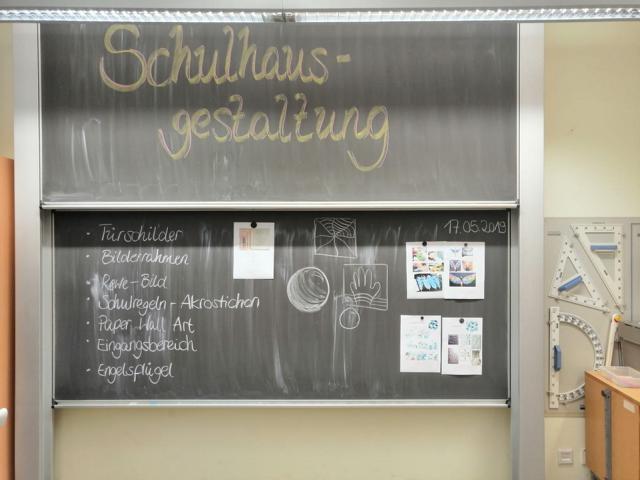 Schulhaus-
gestaltung
17.05.2019
· Türschilder
· Bilderrahmen
· Rewe-Bild
· Schulregeln - Akrostichon
· Paper Wall Art
· Eingangsbereich
· Engelsflügel